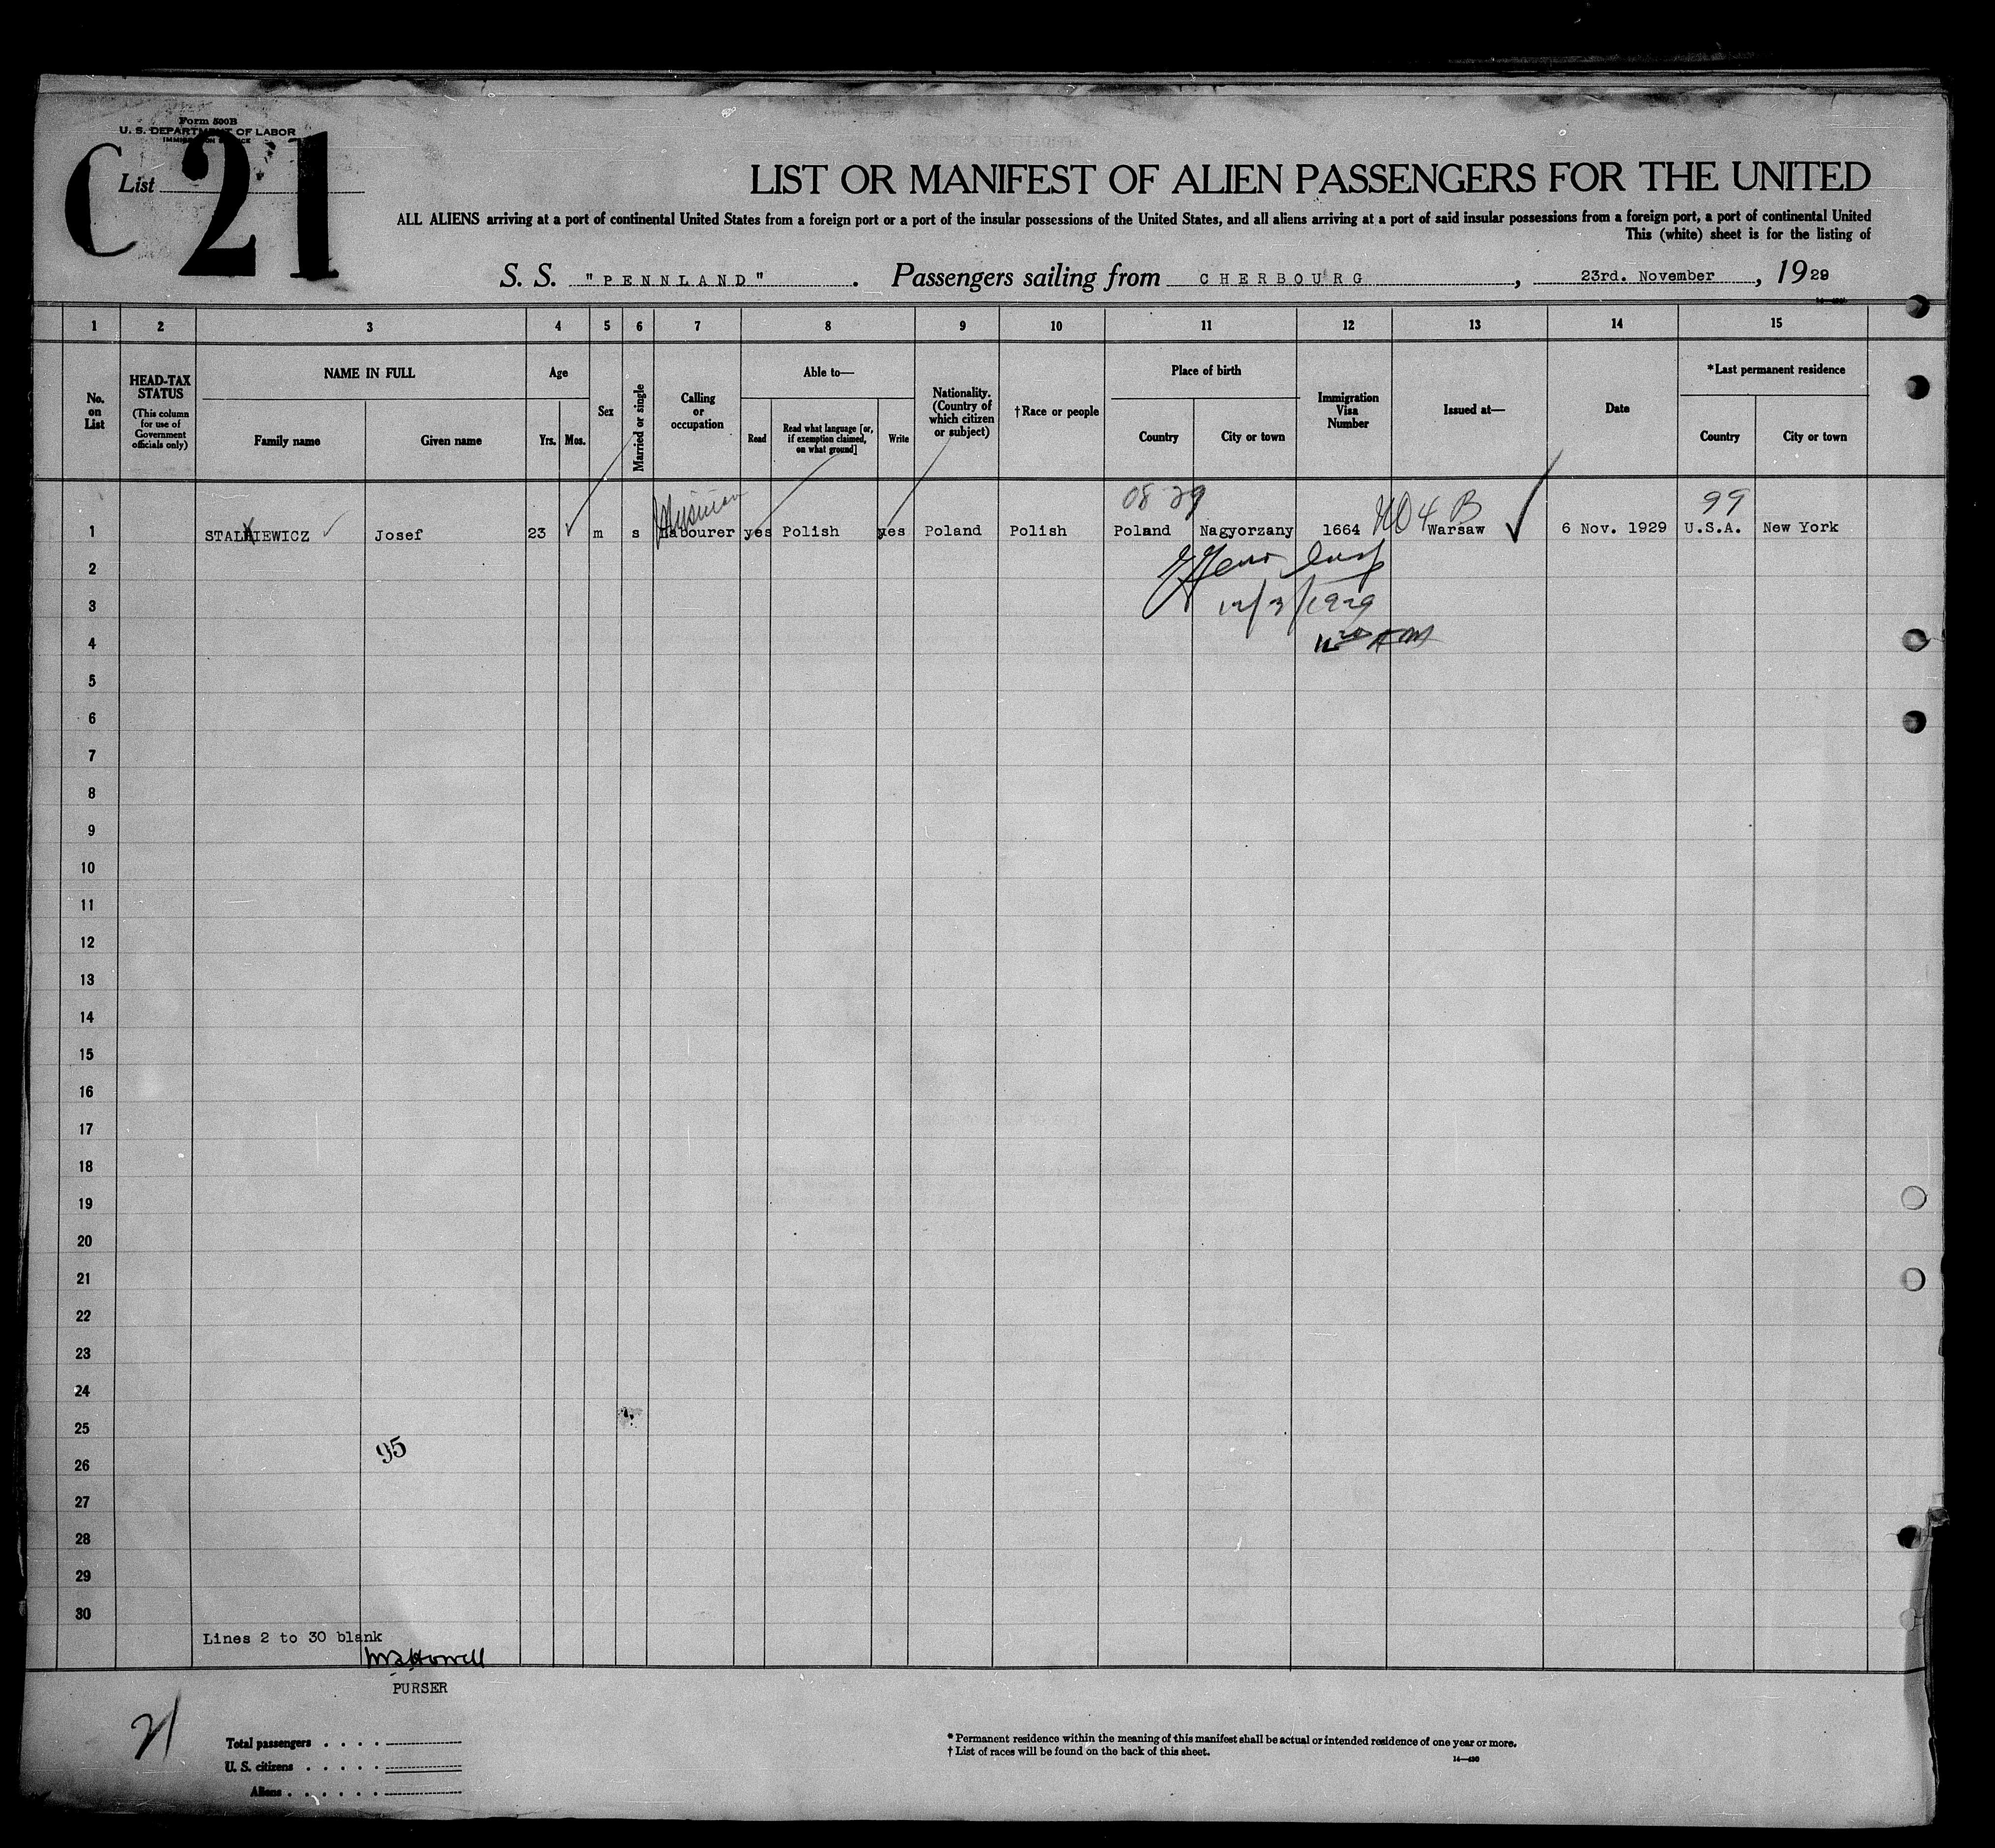 Form 500B
U. S. DEPARTMENT OF LABOR
IMMIGRATION SERVICE
C 21
List
LIST OR MANIFEST OF ALIEN PASSENGERS FOR THE UNITED
ALL ALIENS arriving at a port of continental United States from a foreign port or a port of the insular possessions of the United States, and all aliens arriving at a port of said insular possessions from a foreign port, a port of continental United
This (white) sheet is for the listing of
S. S. "PENNLAND". Passengers sailing from CHERBOURG, 23rd. November, 1929
1 2 3 4 5 6 7 8 9 10 11 12 13 14 15
No. on List
HEAD-TAX STATUS
(This column for use of Government officials only)
NAME IN FULL
Family name
Given name
Age
Yrs.
Mos.
Sex
Married or single
Calling or occupation
Able to—
Read
Read what language [or, if exemption claimed, on what ground]
Write
Nationality. (Country of which citizen or subject)
†Race or people
Place of birth
Country
City or town
Immigration Visa Number
Issued at—
Date
*Last permanent residence
Country
City or town
08 29
99
4 B
1 Josef 23 m s Labourer yes Polish yes Poland Polish Poland Nagyorzany 1664 Warsaw 6 Nov. 1929 U.S.A. New York
2
12/3/1929
3
4
5
6
7
8
9
10
11
12
13
14
15
16
17
18
19
20
21
22
23
24
25
95
26
27
28
29
30
Lines 2 to 30 blank
PURSER
21
Total passengers
U. S. citizens
Aliens
* Permanent residence within the meaning of this manifest shall be actual or intended residence of one year or more.
† List of races will be found on the back of this sheet.
14—430